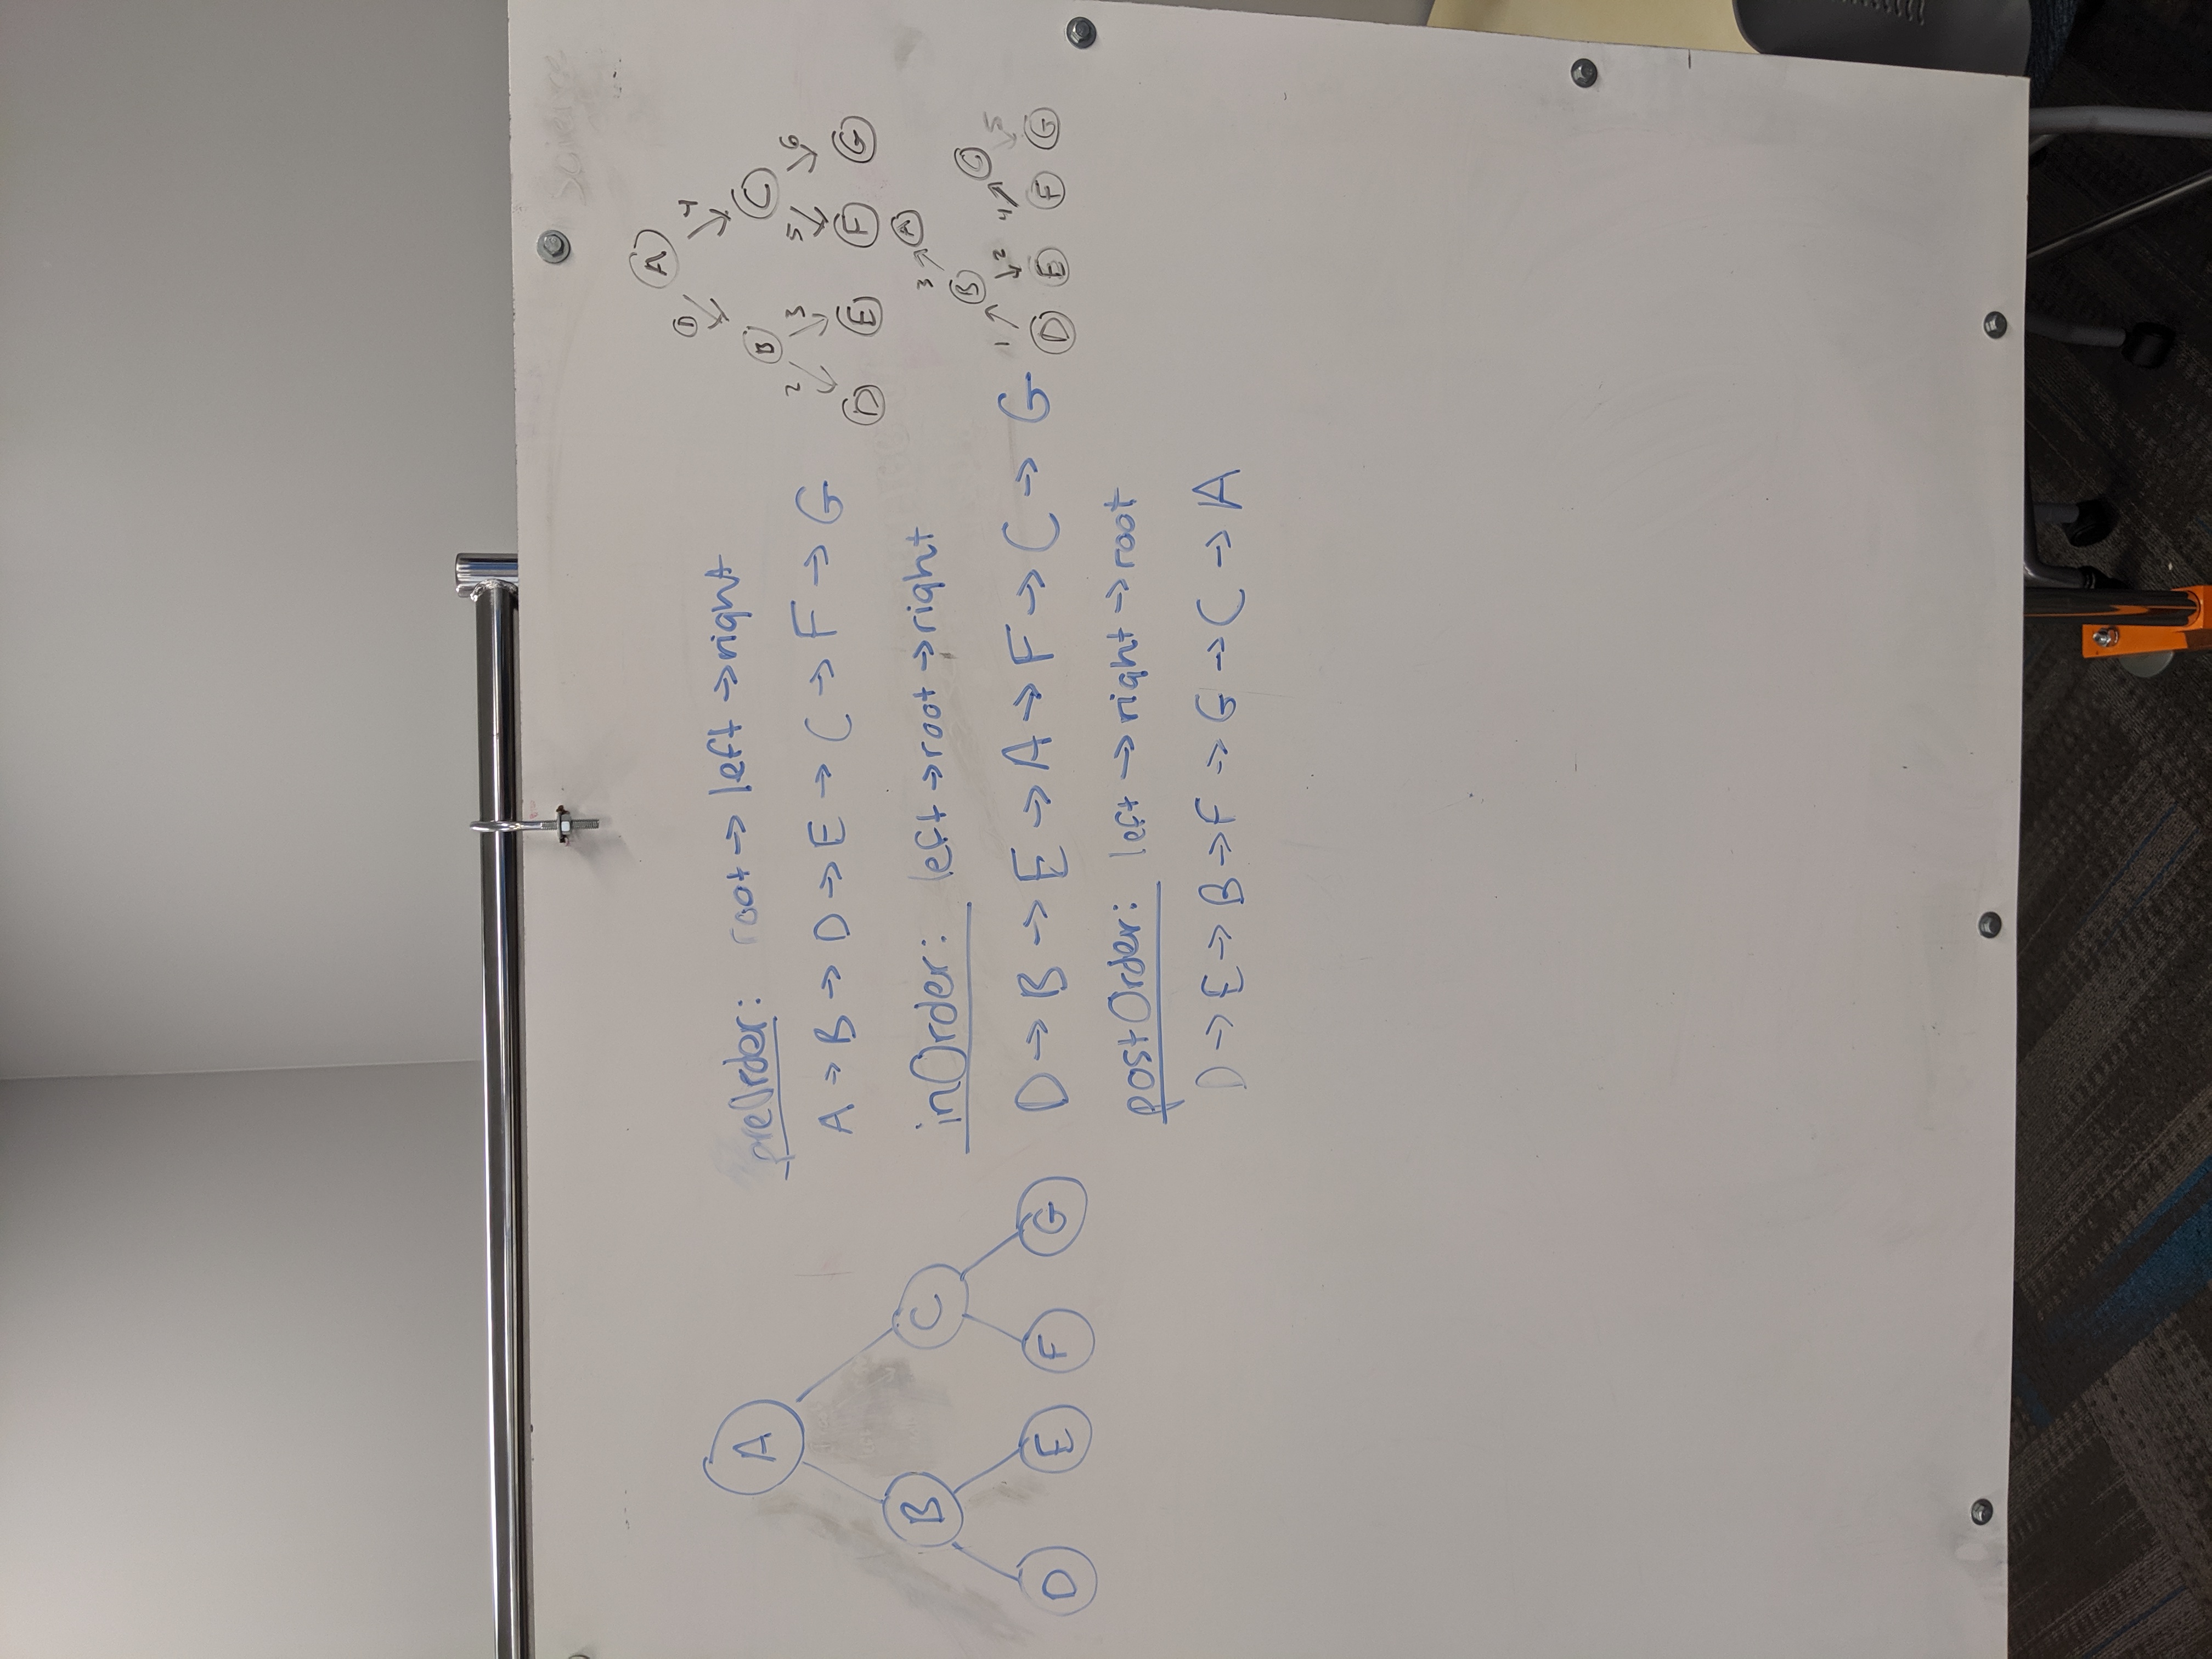 A
B C
D E F G
preOrder: root → left → right
A → B → D → E → C → F → G
inOrder: left → root → right
D → B → E → A → F → C → G
postOrder: left → right → root
D → E → B → F → G → C → A
A
1 4
B C
2 3 5 6
D E F G
A
3
B C
1 2 4 5
D E F G
Science